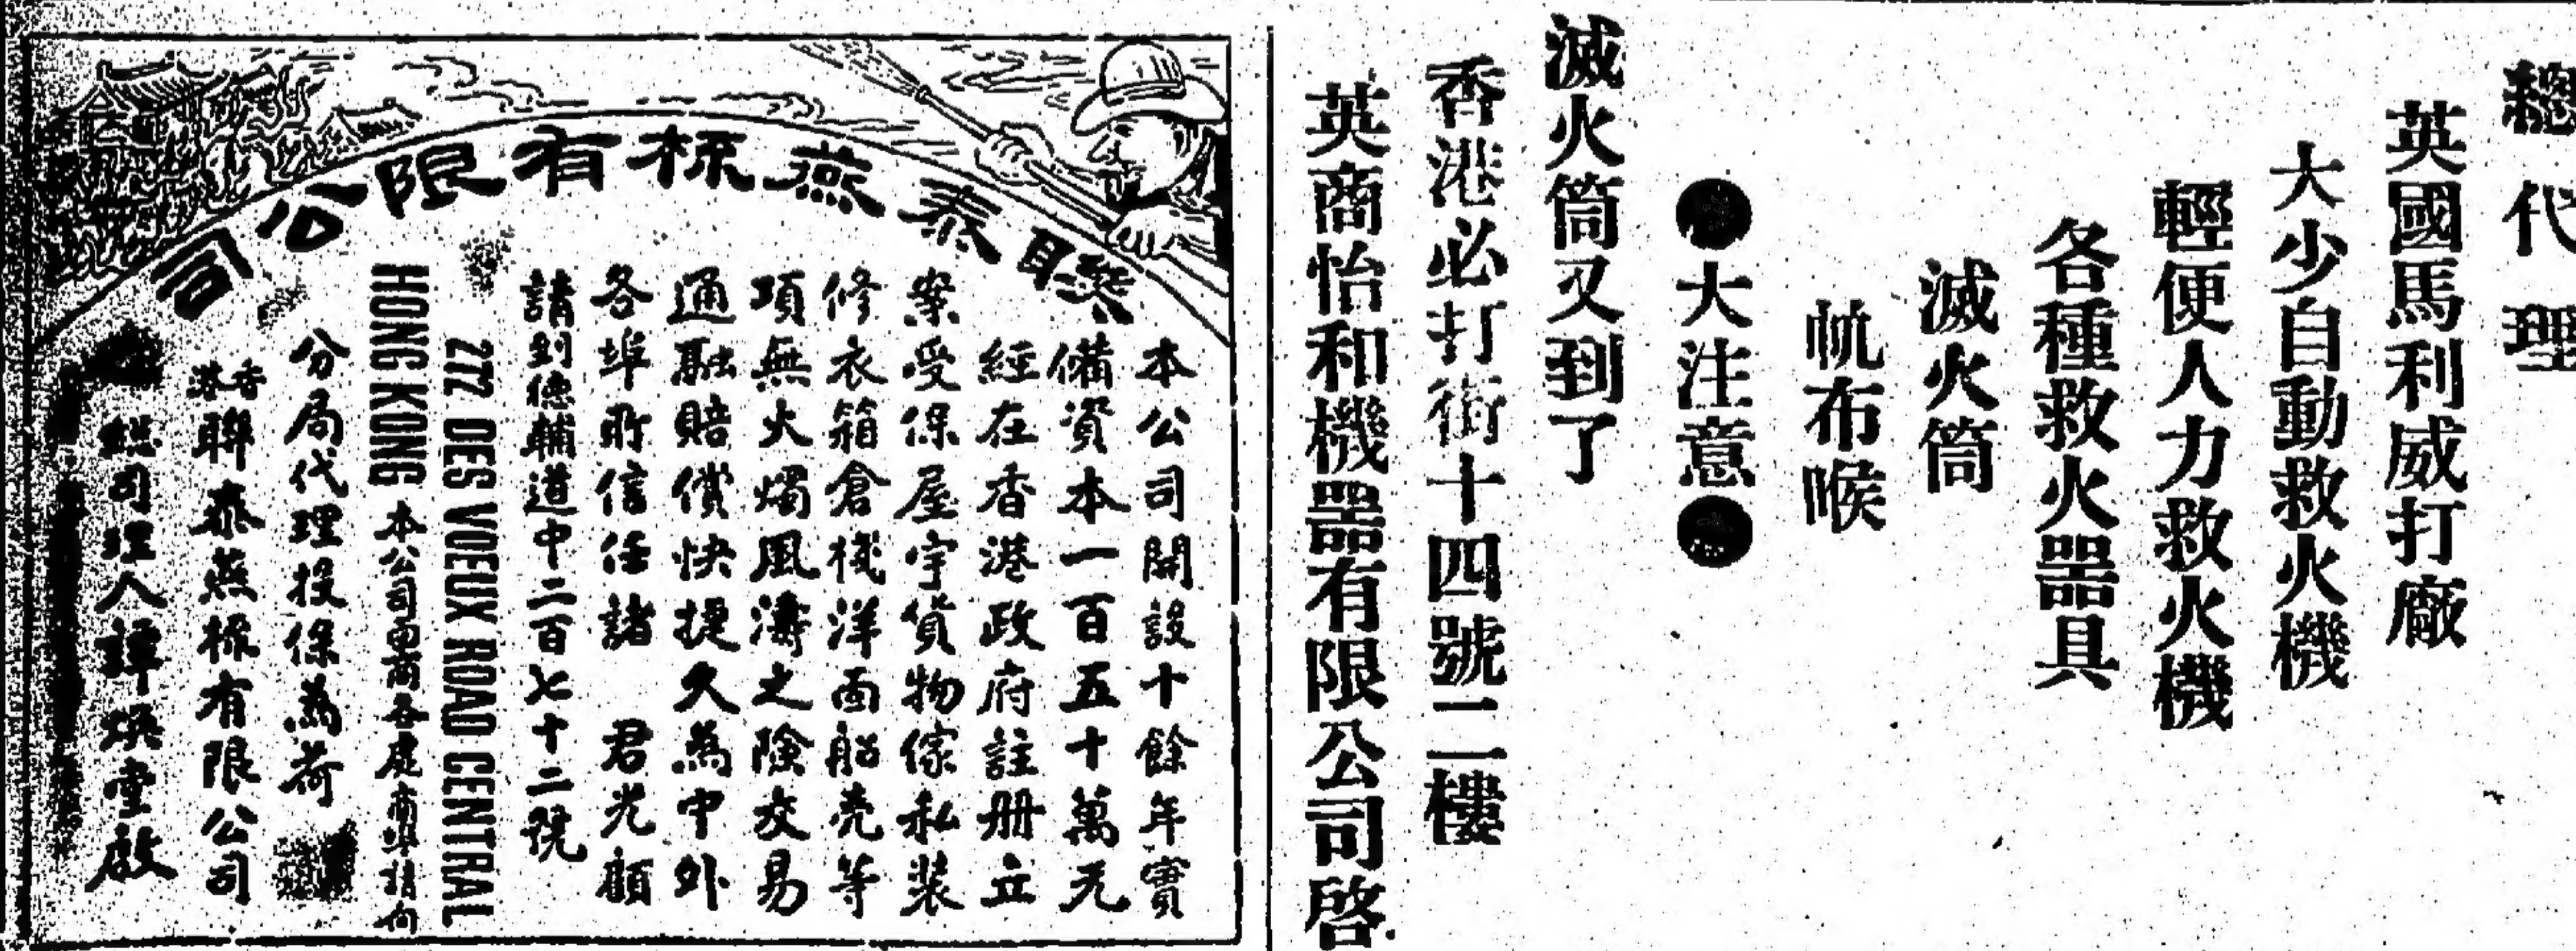 總代理
英國馬利威打廠
大少自動救火機
輕便人力救火機
各種救火器具
滅火筒
帆布喉
大注意
滅火筒又到了
香港必打街十四號二樓
英商怡和機器有限公司啓
聯泰燕梳有限公司
本公司開設十餘年實
備資本一百五十萬元
經在香港政府註册立
案受保屋宇貨物傢私装
修衣箱倉棧洋面船壳等
項無火燭風濤之險交易
通融賠償快捷久為中外
各埠所信任諸 君光顧
請到德輔道中二百七十二號
272 DES VOEUX ROAD CENTRAL
HONG KONG 本公司各處商埠請向
分局代理投保為荷
香港聯泰燕梳有限公司
總司理人譚煥堂啟